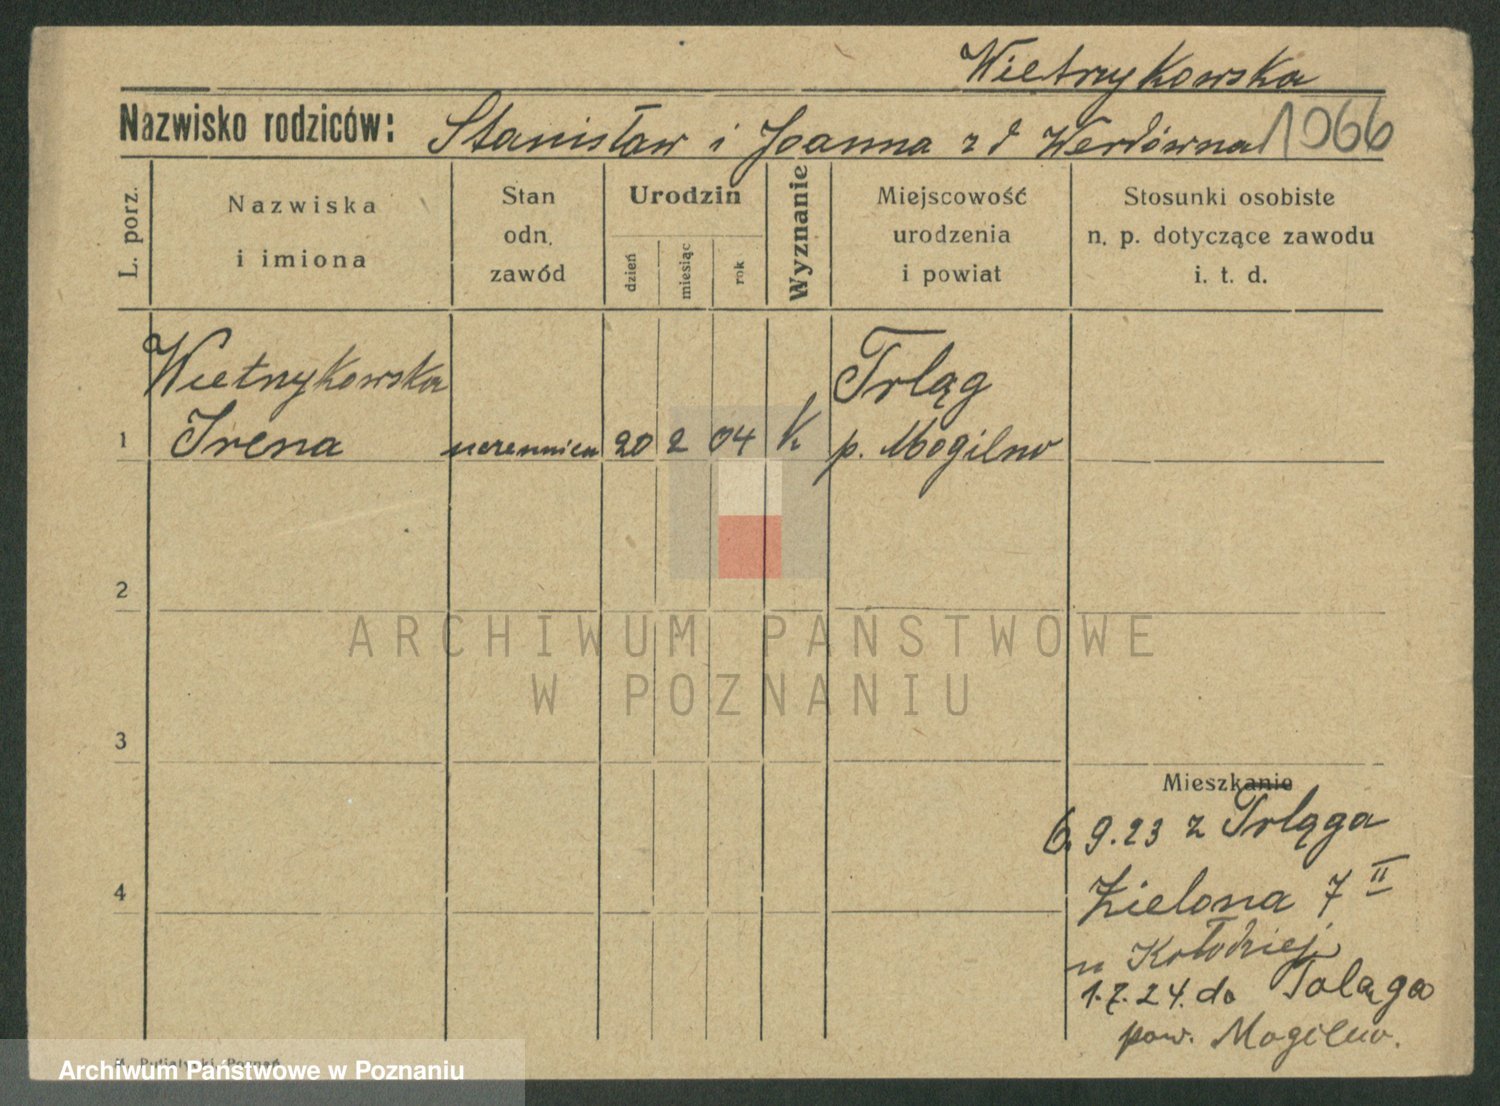 Wietrzykowska
Nazwisko rodziców: Stanisław i Joanna z d Werłówna 1066
L. porz.
Nazwiska
i imiona
Stan
odn.
zawód
Urodzin
dzień
miesiąc
rok
Wyznanie
Miejscowość
urodzenia
i powiat
Stosunki osobiste
n. p. dotyczące zawodu
i. t. d.
Wietrzykowska Trląg
1 Irena uczennica 20 2 04 K p. Mogilno
2
ARCHIWUM PAŃSTWOWE
W POZNANIU
3
Mieszkanie
6.9.23 z Trląga
4
Zielona 7 II
u Kołodziej
1.7.24. do Toląga
pow. Mogilno.
Poznań
Archiwum Państwowe w Poznaniu